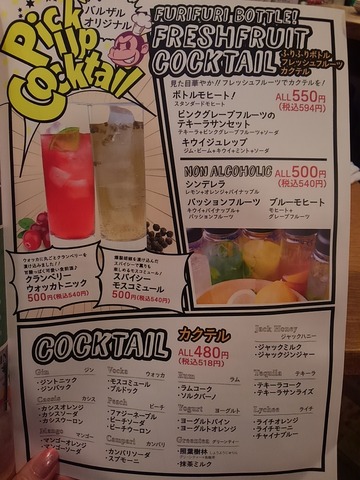 バルザル
オリジナル
Pick
Up
Cocktail
FURIFURI BOTTLE!
FRESHFRUIT
COCKTAIL
ふりふりボトル
フレッシュフルーツ
カクテル
見た目華やか!!フレッシュフルーツでカクテルを!
ボトルモヒート!
スタンダードモヒート
ALL550円
(税込594円)
ピンクグレープフルーツの
テキーラサンセット
テキーラ+ピンクグレープフルーツ+ソーダ
キウイジュレップ
ジム・ビーム+キウイ+ミント+ソーダ
NON ALCOHOLIC
ALL500円
(税込540円)
シンデレラ
レモン+オレンジ+パイナップル
パッションフルーツ
キウイ+パイナップル+
パッションフルーツ
ブルーモヒート
モヒート+
グレープフルーツ
ウォッカに丸ごとクランベリーを
漬け込みました!!
クランベリー
ウォッカトニック
500円(税込540円)
スパイシー
モスコミュール
500円(税込540円)
COCKTAIL
カクテル
ALL480円
(税込518円)
Gin ジン
・ジントニック
・ジンバック
Cassis カシス
・カシスオレンジ
・カシスソーダ
・カシスウーロン
Mango マンゴー
・マンゴーオレンジ
・マンゴーソーダ
Vocka ウォッカ
・モスコミュール
・ブルドック
Peach ピーチ
・ファジーネーブル
・ピーチソーダ
・ピーチウーロン
Campari カンパリ
・カンパリソーダ
・スプモーニ
Rum ラム
・ラムコーク
・ソルクバーノ
Yogurt ヨーグルト
・ヨーグルトパイン
・ヨーグルトオレンジ
Greentea グリーンティー
・照葉樹林
・抹茶ミルク
Jack Honey
ジャックハニー
・ジャックミルク
・ジャックジンジャー
Tequila テキーラ
・テキーラコーク
・テキーラサンライズ
Lychee ライチ
・ライチオレンジ
・ライチモーニ
・チャイナブルー